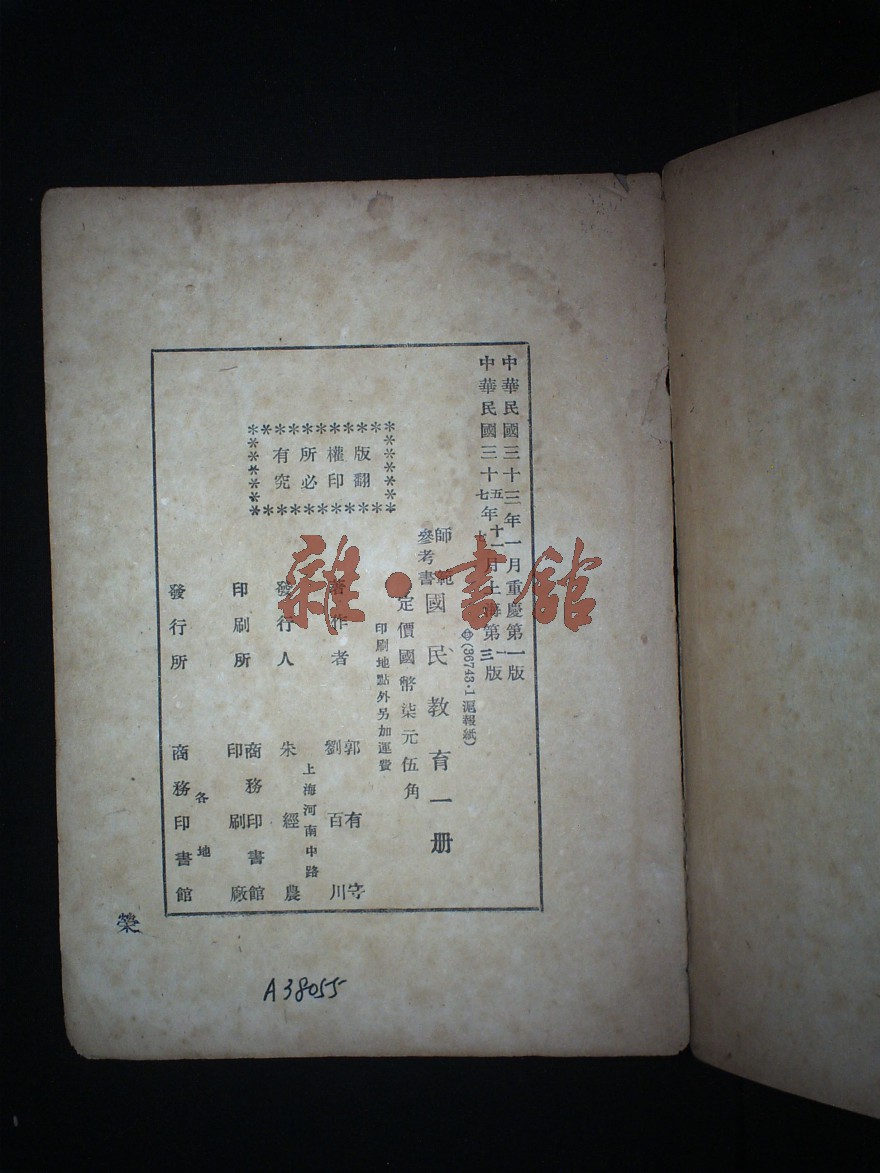 中華民國三十三年一月重慶第一版
中華民國三十五年十一月上海第一版
七 三
(36743·1滬報紙)
師範
參考書
國民教育一册
定價國幣柒元伍角
印刷地點外另加運費
版權所有
翻印必究
著作者 郭有守
劉百川
上海河南中路
發行人 朱經農
印刷所 商務印書館
印刷廠
發行所 各地
商務印書館
榮
A38055
雜·書館